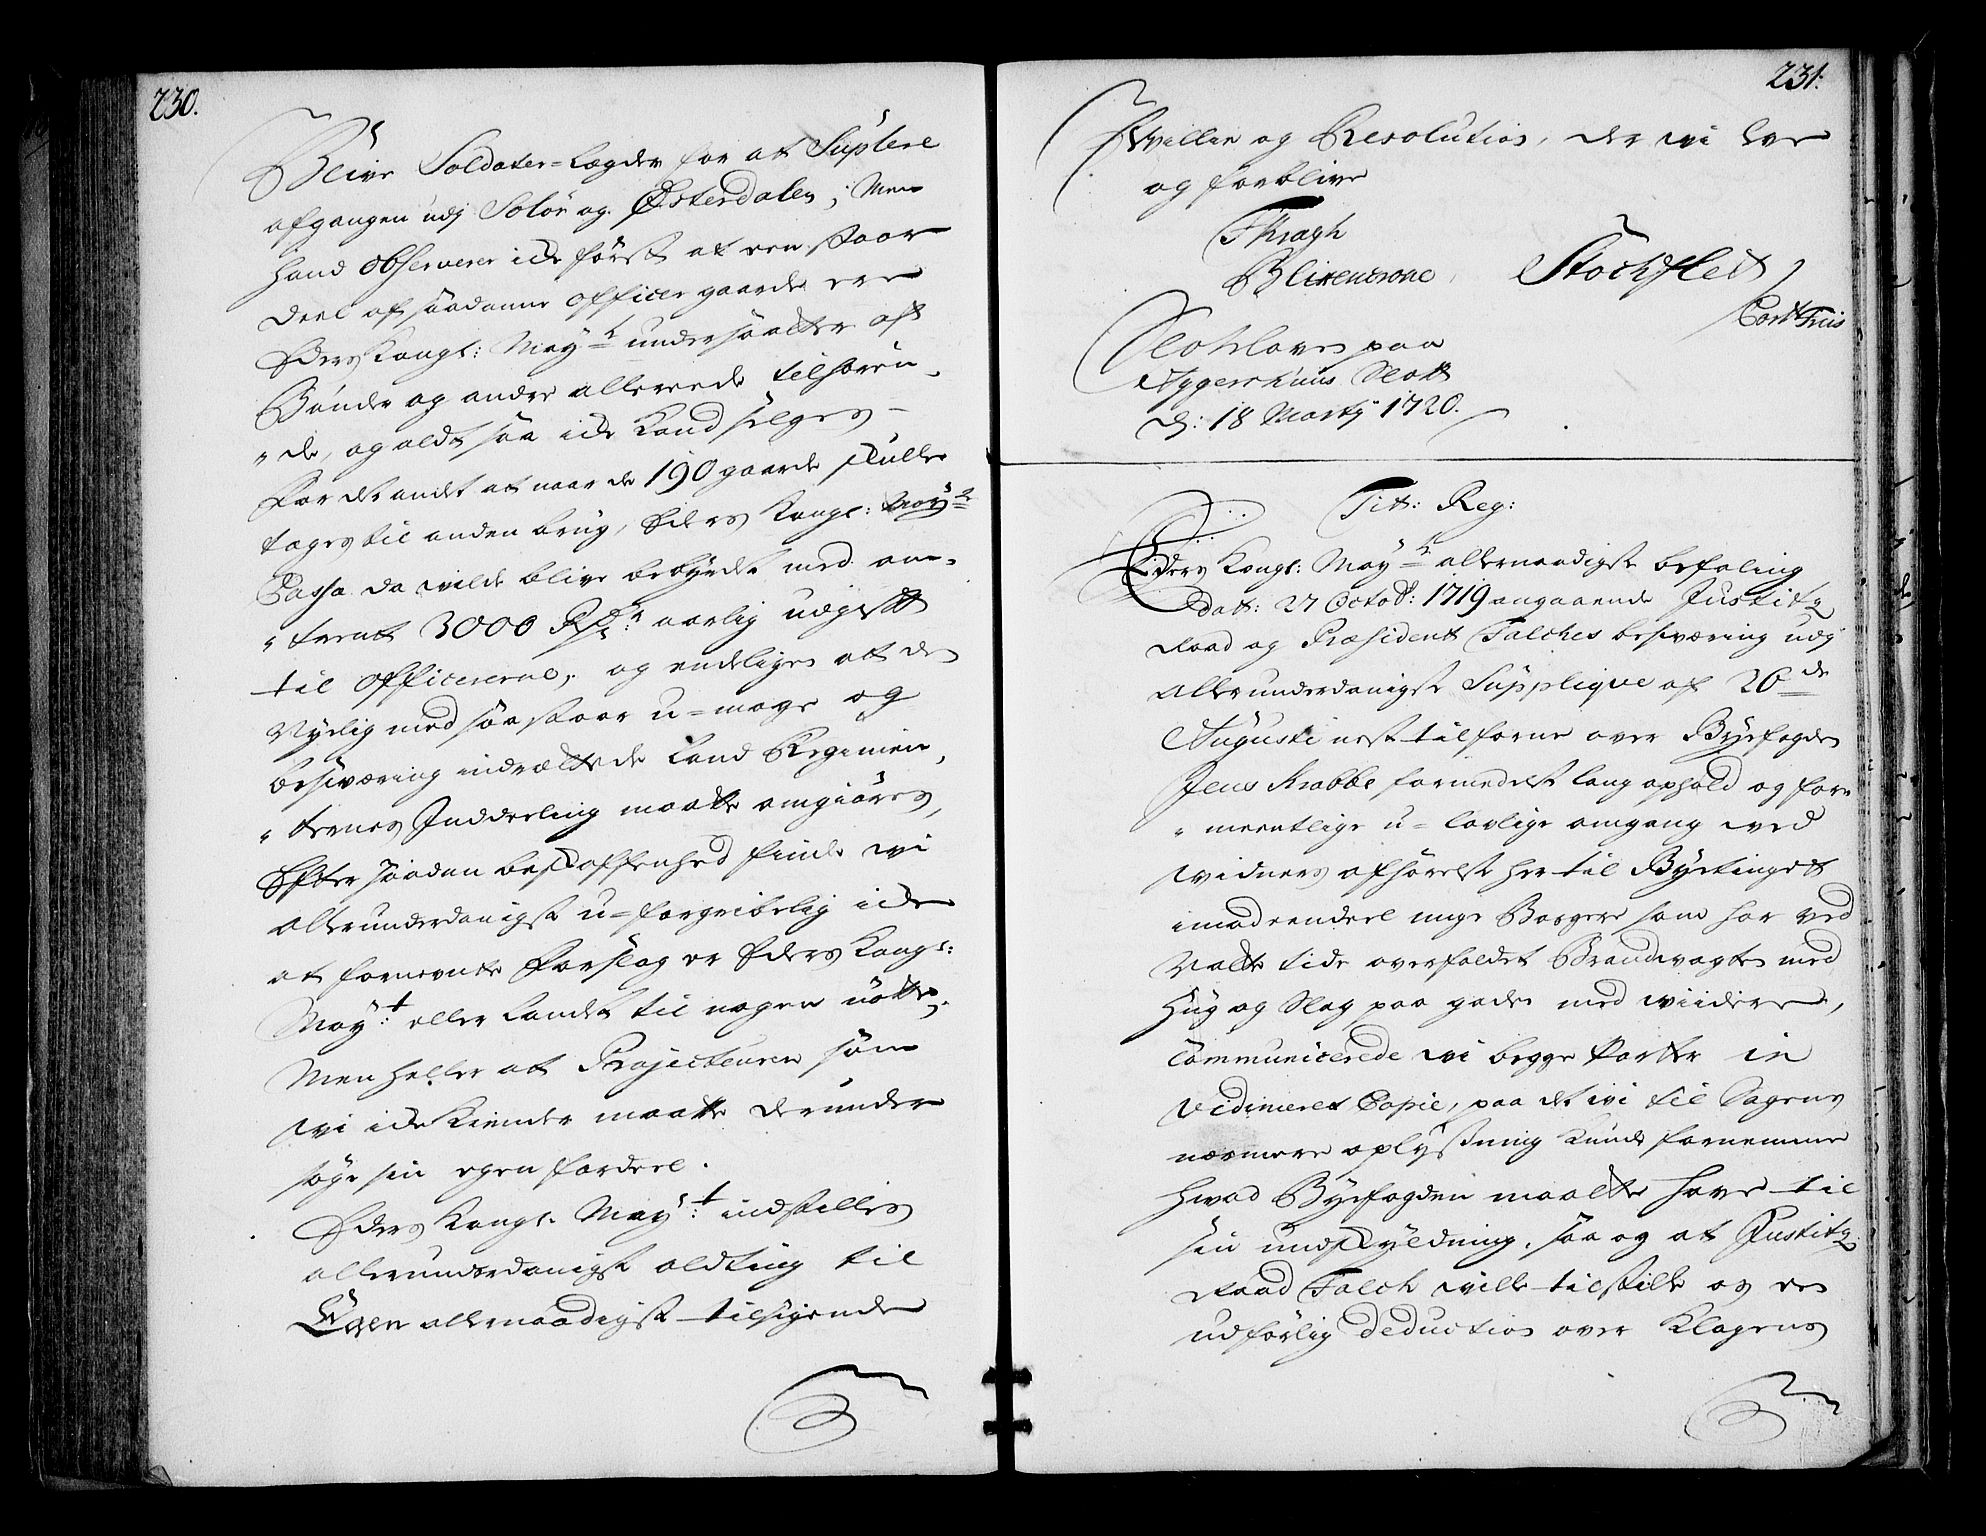 230.
Blive Soldater-Lægder for at Suplere
afgangen udj Solör og Østerdalen; Men
hand observerer icke först at een stoor
deel af saadanne officer gaarde ere
Eders Kongl: May.ts undersaatter oft
Bönder og andre allereede tilhören-
"de, og aldt saa icke kand sælges
For det andet at naar de 190 gaarde skulle
tages til anden brug, Eders Kongl: May.ts
Cassa da wilde blive bebyrdet med om-
"trent 3000 Rdr. aarlig udgift
til officererne, og endeligen at den
Nylig med saa stoor u-mage og
beswæring indrættede Land Regimen-
"ternes Inddeeling maatte omgiöres,
Efter saadan beskaffenhed finde wi
allerunderdanigst u-forgribelig icke
at fornevnte Forslag er Eders Kongl:
May:t eller Landet til nogen nötte,
Men heller at Projecteuren som
wi icke kiender maatte derunder
söge sin egen fordeel.
Eders Kongl. May:t indstilles
allerunderdanigst alting til
Egen allernaadigst tilsigende
231.
Willie og Resolution, der wi leve
og forblive
FKragh
Blixencrone, Stochfleth
Cort Friis
Slotzlovens paa
Aggershuus Slott
d: 18 Martij 1720.
Tit: Reg:
Eders Kongl: May.ts allernaadigste befaling
dat: 27 Octob: 1719 angaaende Justitz
Raad og Præsident Falches beswæring udj
allerunderdanigst Supplique af 26de
Augusti nest tilforne over Byefogden
Jens Krabbe formedelst lang ophold og for-
"meentlige u-lovlige omgang wed
widners afhörelse her til Byetinget
imod eendeel unge Borgere som har ved
Natte tide overfaldet Brandwagten med
Hug og Slag paa gaden med wiidere,
Communicerede wi begge Parter in
Vidimeret Copie, paa det wi til Sagens
nærmere oplysning kunde fornemme
hwad Byefogden maatte have til
sin undskyldning, saa og at Justitz
Raad Falch wille tilstille os en
udförlig Deduction over Klagens